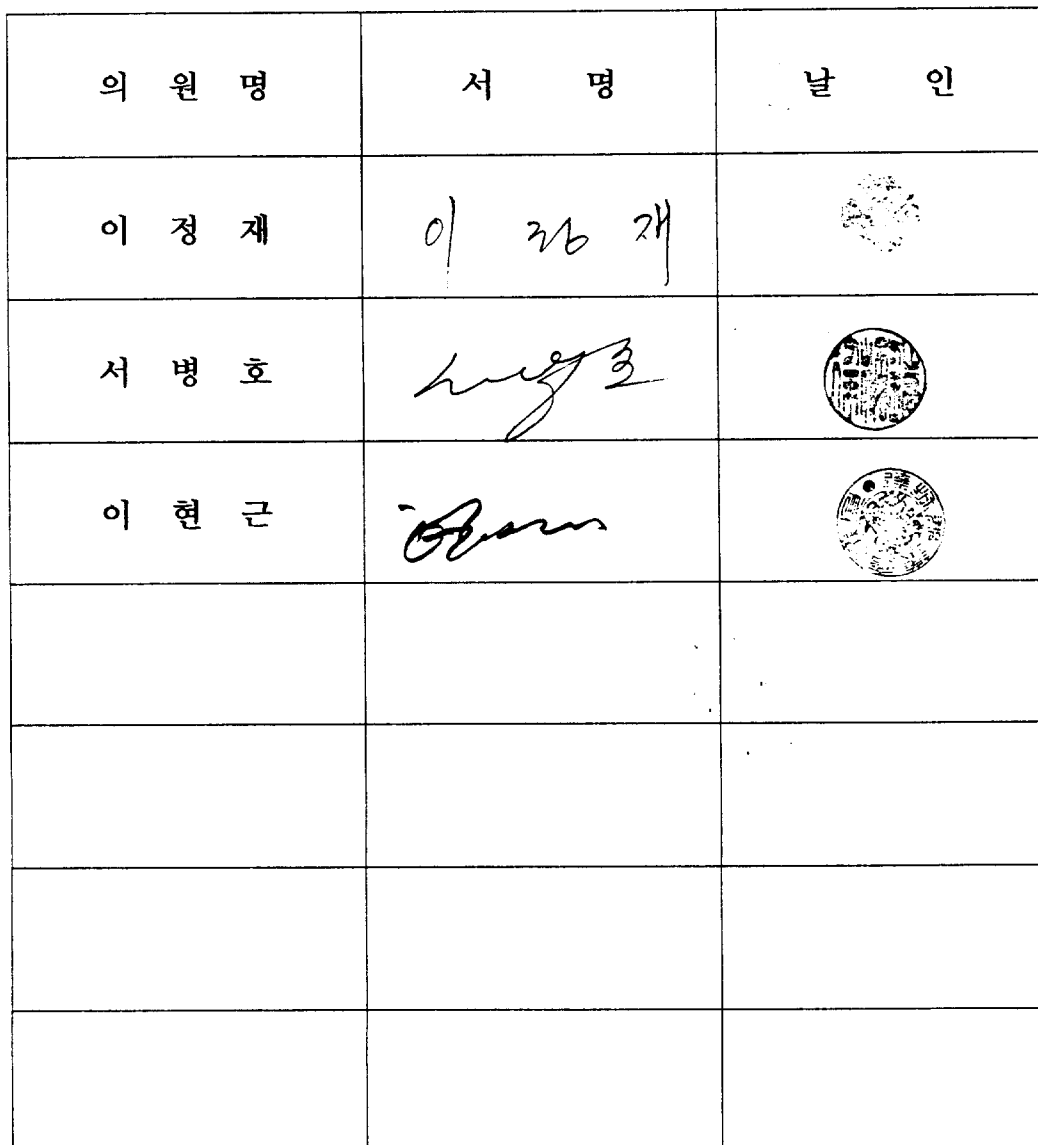 의 원 명 서 명 날 인
이 정 재 이 정 재
서 병 호 서병호
이 현 근